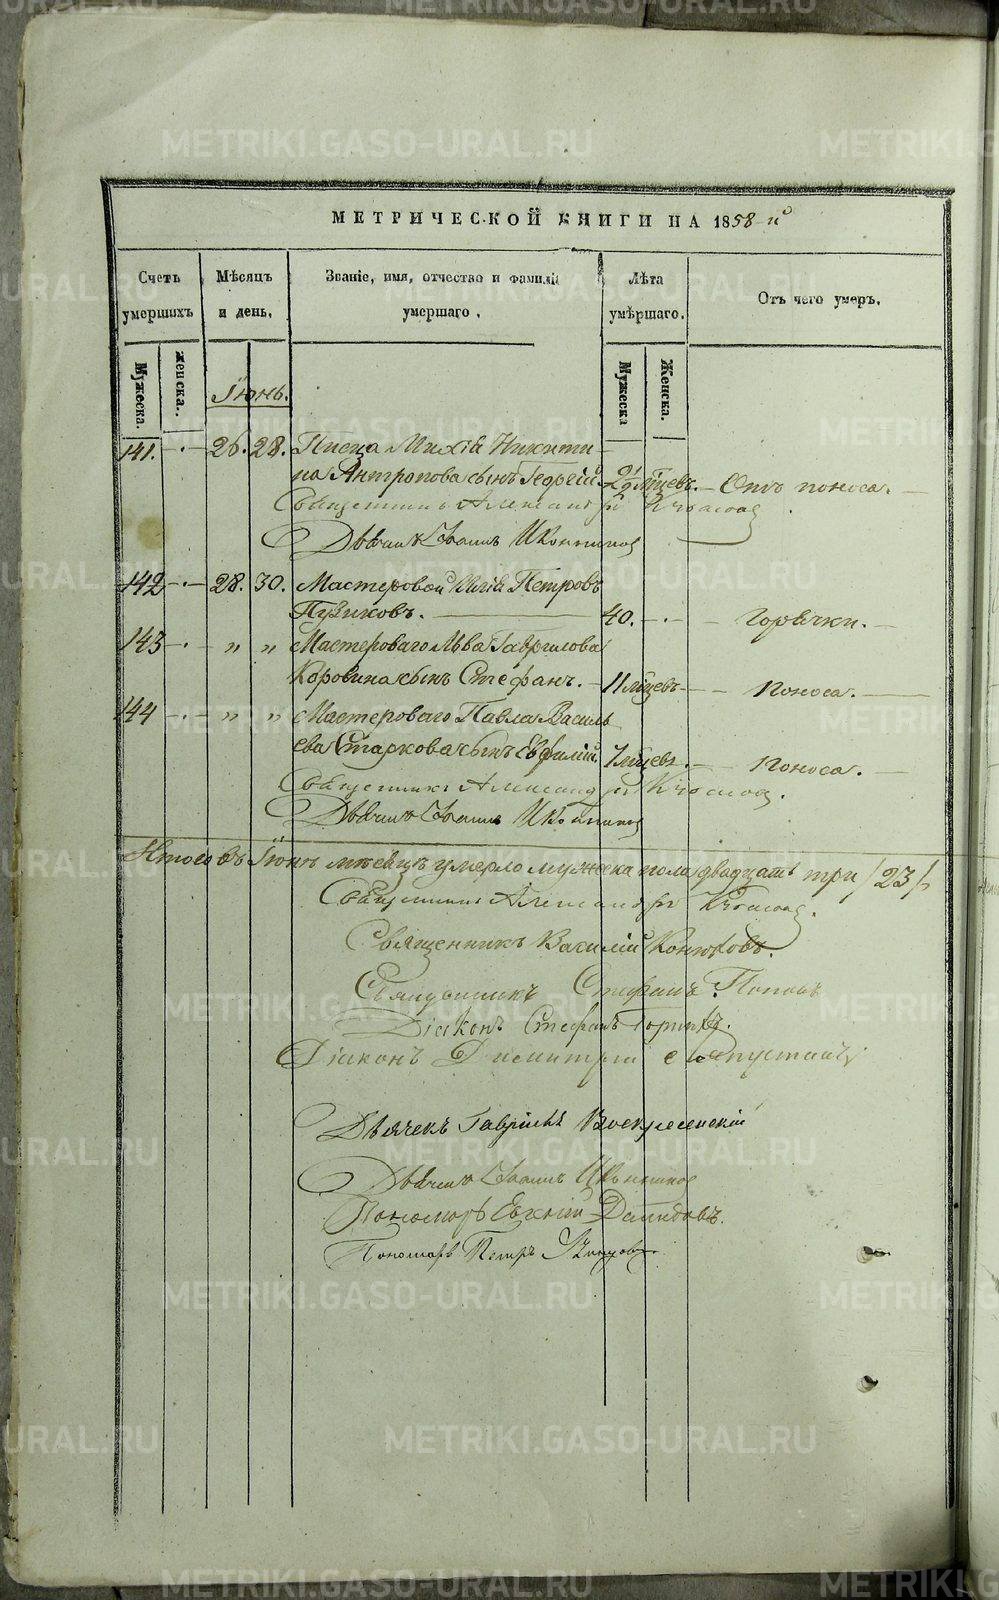 МЕТРИЧЕСКОЙ КНИГИ НА 1858-й
Счетъ умершихъ
Мѣсяцъ и день.
Званіе, имя, отчество и фамилія умершаго.
Лѣта умѣршаго.
Отъ чего умеръ.
Мужеска.
женска.
Мужеска
Женска.
Іюнь.
141. 26. 28. Писца Михея Никити-
на Антропова сынъ Георгій. 2½ мѣсцевъ. Отъ поноса.
Священникъ Александръ
Дьячекъ Іоаннъ Иконниковъ
142 28. 30. Мастеровой Петровъ
40. Горячки.
143 " " Мастероваго Льва Гаврилова
Коровина сынъ Стефанъ. 11 мѣсцевъ Поноса.
144 " " Мастероваго Павла Василь
ева Старкова сынъ Евфимій. 7 мѣсцевъ. Поноса.
Священникъ Александръ
Дьячекъ Іоаннъ Иконниковъ
Итого въ Іюнѣ мѣсяцѣ умерло мужеска пола двадцать три /23/.
Священникъ Александръ
Священникъ Василій Конюховъ.
Священникъ Стефанъ Поповъ
Діаконъ Стефанъ
Діаконъ Димитрій
Дьячекъ Гавріилъ Воскресенскій
Дьячекъ Іоаннъ Иконниковъ
Пономарь Евгеній Демидовъ.
Пономарь Петръ
METRIKI.GASO-URAL.RU